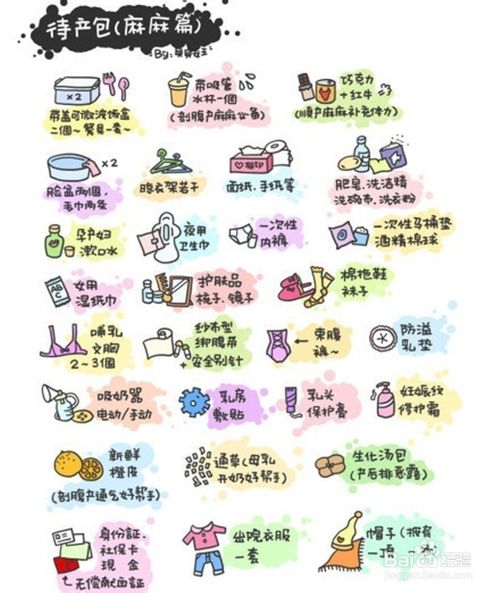 待产包(麻麻篇)
By:贝贝娃
×2
带盖可微波饭盒
二個~餐具一套~
带吸管
水杯一個
(剖腹产麻麻必备)
巧克力
+红牛
(顺产麻麻补充体力)
×2
脸盆两個,
毛巾两条
晾衣架若干
相印
面纸.手纸等
肥皂.洗洁精
洗碗布.洗衣粉
孕产妇
漱口水
夜用
卫生巾
一次性
内裤
一次性马桶垫
酒精棉球
ABC
女用
湿纸巾
护肤品
梳子.镜子
棉拖鞋
袜子
哺乳
文胸
2~3個
纱布型
绑腹带
+安全别针
束腹
裤~
防溢
乳垫
吸奶器
电动/手动
乳房
敷贴
乳头
保护膏
妊娠纹
修护霜
新鲜
橙皮
(剖腹产通气好帮手)
通草(母乳
开奶好帮手)
生化汤包
(产后排恶露)
身份証.
社保卡
現 金
无偿献血証
出院衣服
一套
帽子(披肩
一顶 一条)
Baidu经验
jingyan.baidu.com